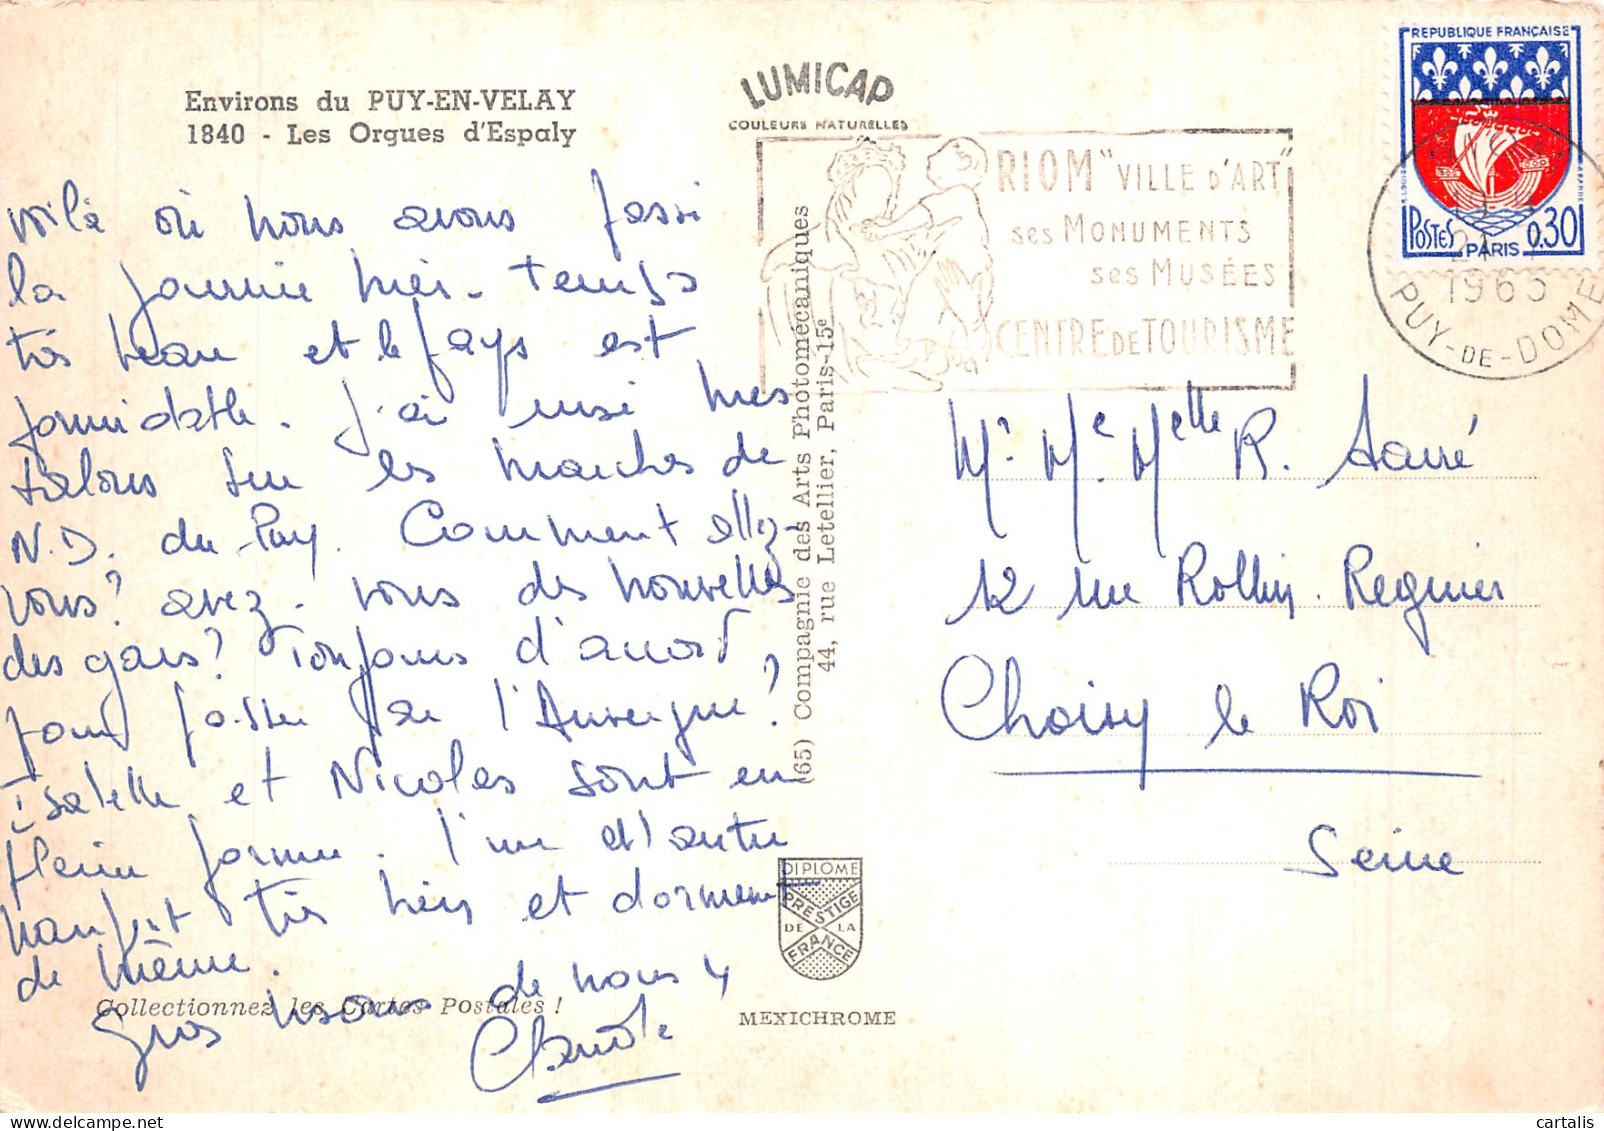 Environs du PUY-EN-VELAY
1840 - Les Orgues d'Espaly
voilà où nous avons passé
la journée hier. temps
très beau et le pays est
formidable. J'ai usé mes
talons sur les marches de
N.D. du Puy. Comment allez-
vous? avez-vous des nouvelles
des gars? Toujours d'accord
pour passer par l'Auvergne?
Isabelle et Nicolas sont en
pleine forme. l'une et l'autre
très bien et dorment
de même.
Gros bisous de nous 4
Claude
Collectionnez les Cartes Postales !
LUMICAP
COULEURS NATURELLES
(65) Compagnie des Arts Photomécaniques
44, rue Letellier, Paris-15e
DIPLOME
PRESTIGE
DE LA
FRANCE
MEXICHROME
RIOM "VILLE D'ART"
ses MONUMENTS
ses MUSÉES
CENTRE DE TOURISME
REPUBLIQUE FRANÇAISE
POSTES PARIS 0,30
1965
PUY-DE-DOME
Mr Me Melle R.
12 rue Rollin Regnier
Choisy le Roi
Seine
cartalis
www.delcampe.net